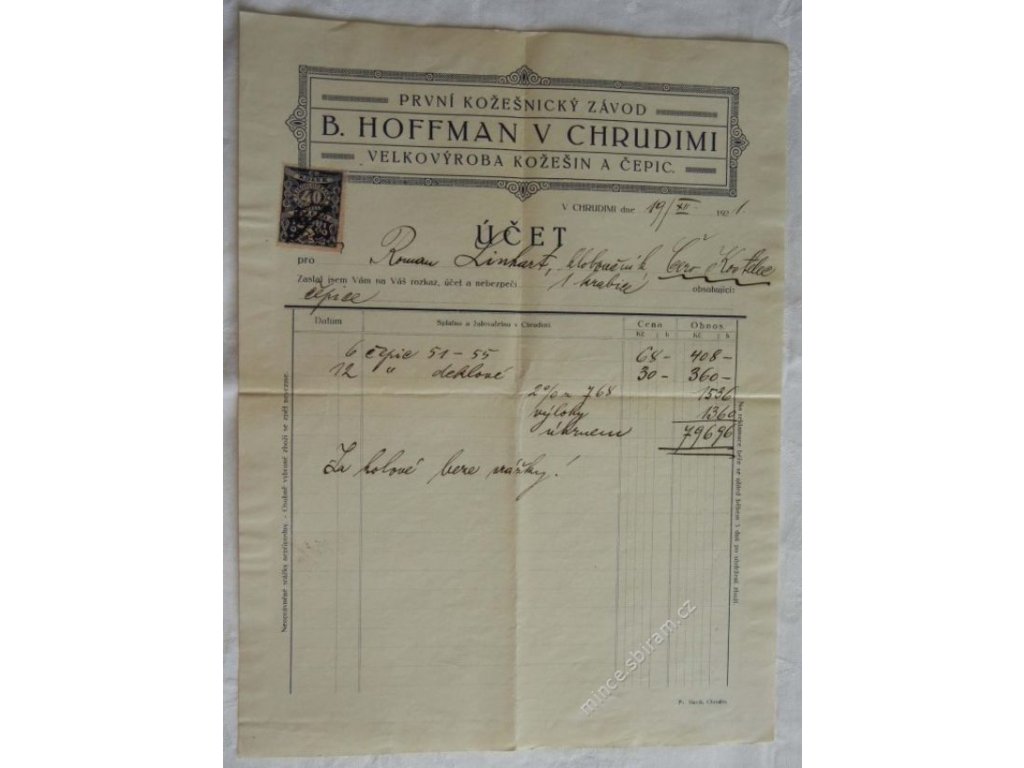 PRVNÍ KOŽEŠNICKÝ ZÁVOD
B. HOFFMAN V CHRUDIMI
VELKOVÝROBA KOŽEŠIN A ČEPIC.
40
V CHRUDIMI dne 19/XII. 1921.
ÚČET
pro Roman Linhart, kloboučník, Červ Kostelec
Zaslal jsem Vám na Váš rozkaz, účet a nebezpečí 1 krabice obsahující:
čepice
Datum Splatno a žalovatelno v Chrudimi Cena Obnos
Kč h Kč h
6 čepic 51-55 68- 408-
12 " deklové 30- 360-
2% z 768 1536
výlohy 1360
úhrnem 79696
Za hotové beze srážky!
Neoprávněné srážky nepřijímám. - Osobně vybrané zboží se zpět nevezme.
Na reklamace beru se zřetel během 3 dnů po obdržení zboží.
mince.sbiram.cz